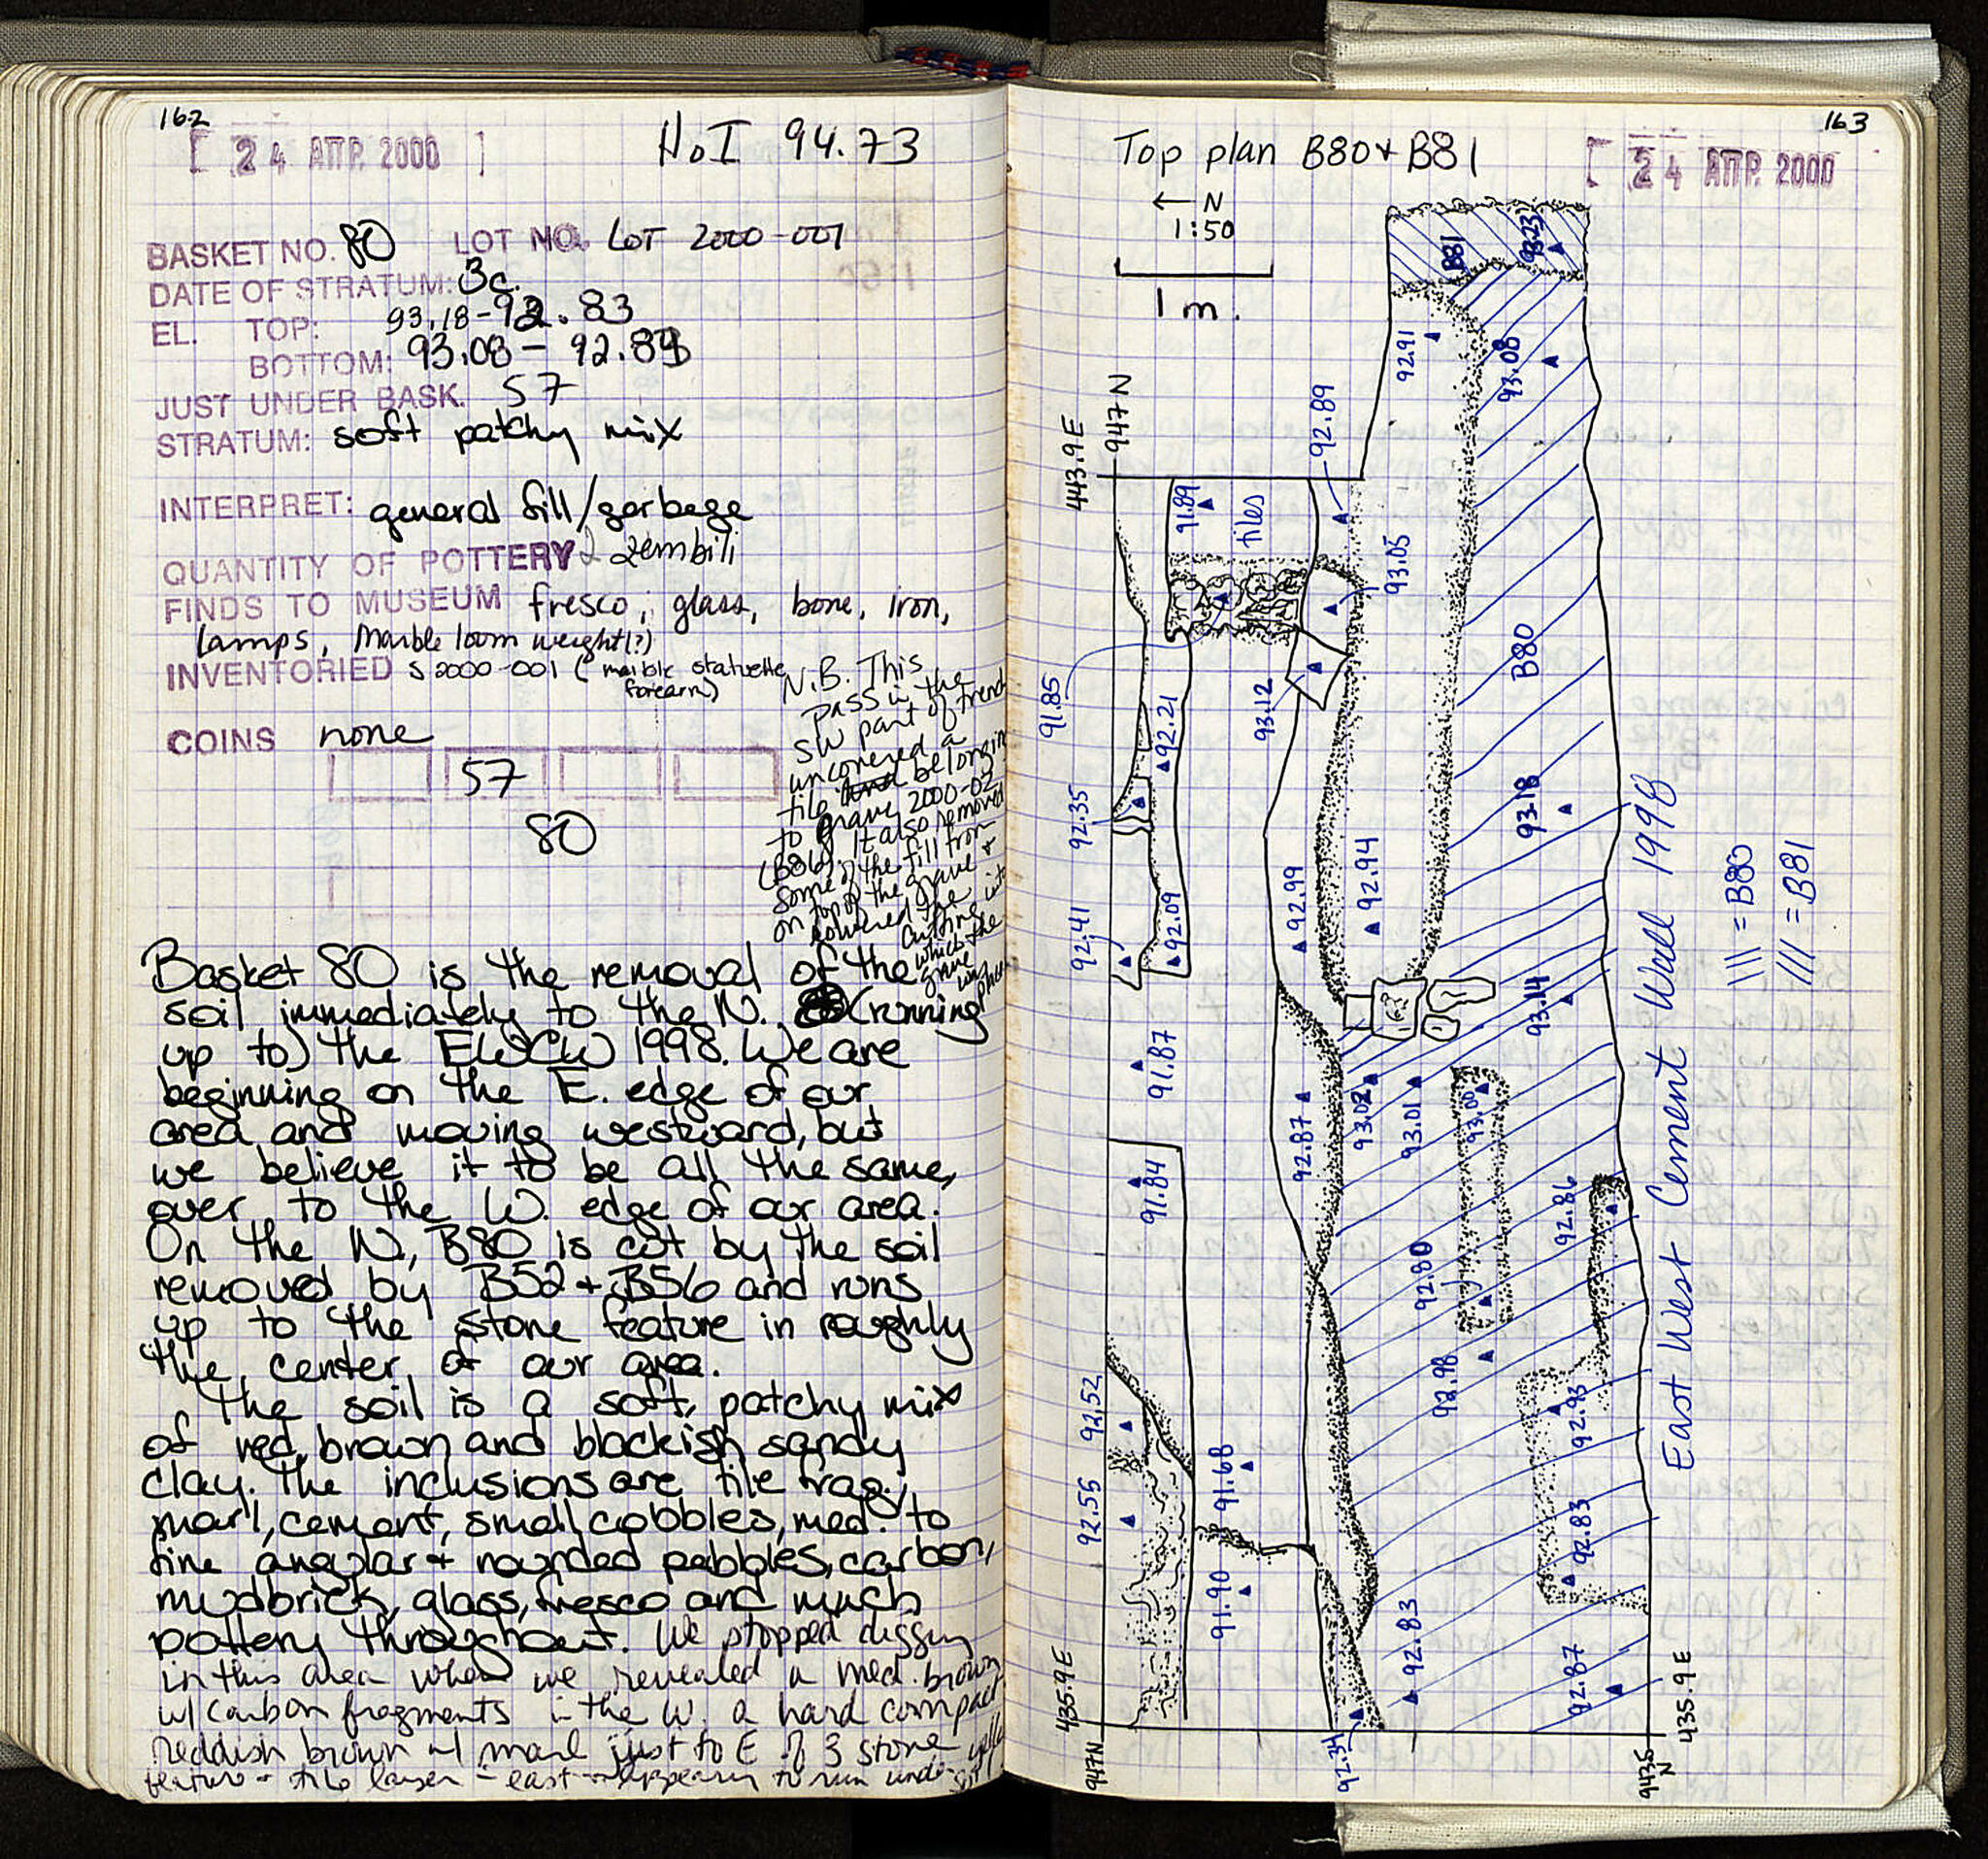 162
[ 24 ΑΠΡ. 2000 ]
H.I 94.73
BASKET NO. 80 LOT NO. LOT 2000-001
DATE OF STRATUM: 3c.
EL. TOP: 93.18-92.83
BOTTOM: 93.08 - 92.83
JUST UNDER BASK. 57
STRATUM: soft patchy mix
INTERPRET: general fill/garbage
QUANTITY OF POTTERY 2 zembili
FINDS TO MUSEUM fresco, glass, bone, iron,
lamps, Marble loom weight(?)
INVENTORIED S 2000-001 (marble statuette
forearm)
COINS none
57
80
N.B. This
pass in the
SW part of trench
uncovered a
tile belonging
to grave 2000-02
(B86). It also removed
some of the fill from
on top of the grave +
lowered the
cutting into
which the
grave was
Basket 80 is the removal of the
soil immediately to the N. (running
up to) the EWCW 1998. We are
beginning on the E. edge of our
area, and moving westward, but
we believe it to be all the same,
over to the W. edge of our area.
On the N, B80 is cut by the soil
removed by B52 + B56 and runs
up to the stone feature in roughly
the center of our area.
The soil is a soft, patchy mix
of red, brown and blackish sandy
clay. The inclusions are tile frag,
marl, cement, small cobbles, med. to
fine angular + rounded pebbles, carbon,
mudbrick, glass, fresco and much
pottery throughout. We stopped digging
in this area when we revealed a med. brown
w/ carbon fragments in the W. a hard compact
reddish brown w/ marl just to E of 3 stone
feature + tile layer - east appearing to run under
163
Top plan B80 + B81
[ 24 ΑΠΡ. 2000
← N
1:50
1 m.
B81
93.23
92.91
93.08
443.9 E
947 N
92.89
91.89
tiles
93.05
B80
91.85
92.21
93.12
92.35
93.18
92.41
92.09
92.99
92.94
93.14
91.87
92.87
93.02
93.01
93.00
91.84
92.86
92.80
92.98
92.52
92.93
92.56
91.68
91.90
92.83
92.83
92.87
East West Cement Wall 1998
||| = B80
/// = B81
435.9 E
947 N
92.34
943.5
N
435.9 E